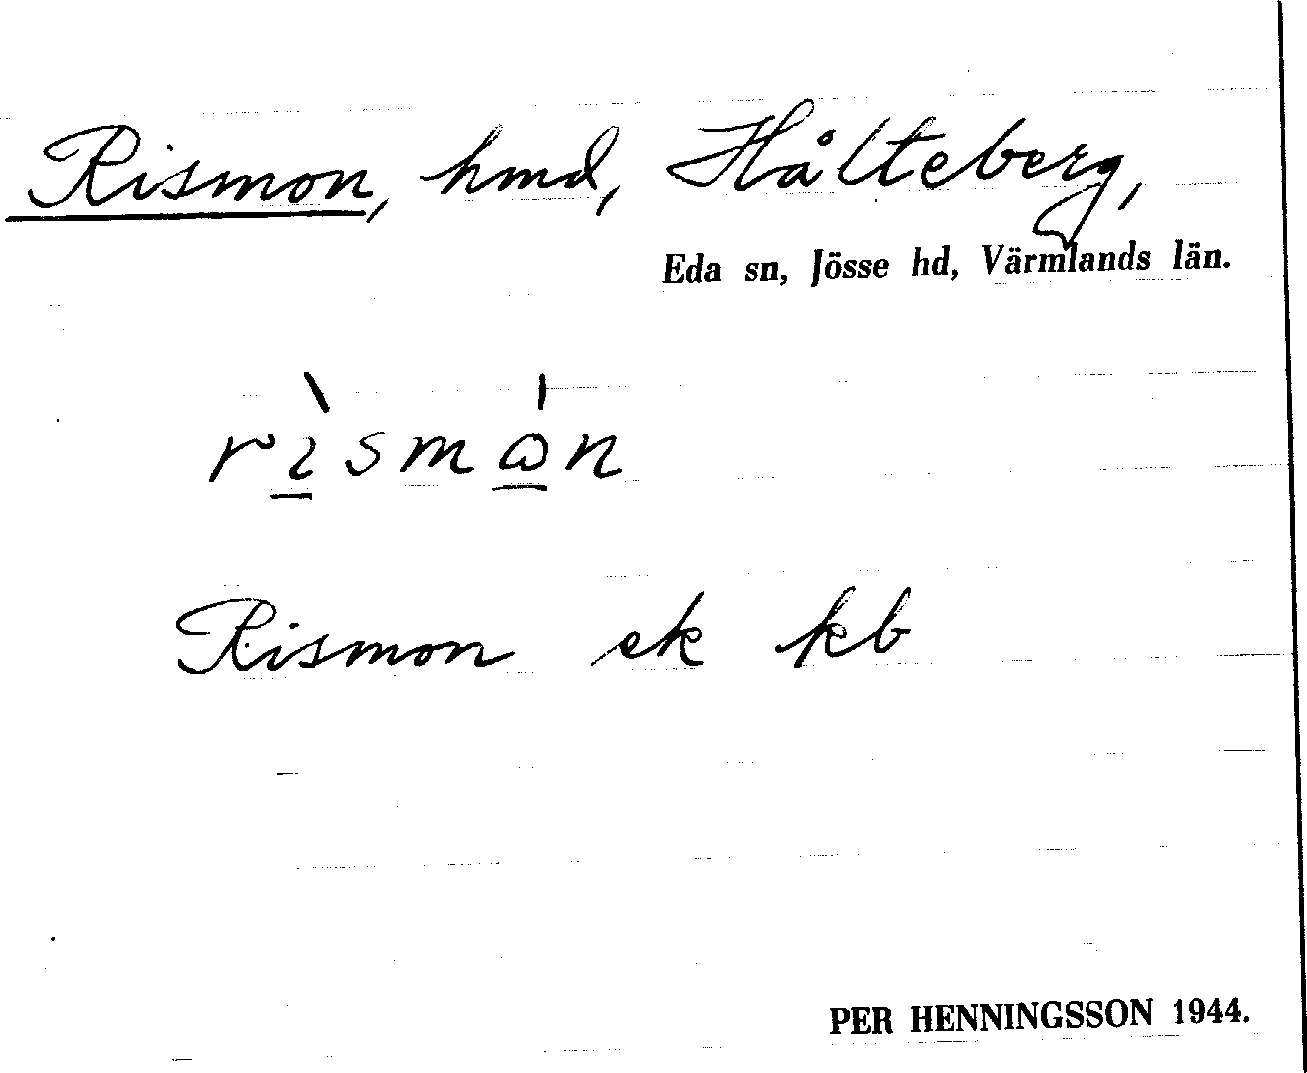 Rismon, hmd, Hålteberg,
Eda sn, Jösse hd, Värmlands län.
Rismon ek kb
PER HENNINGSSON 1944.